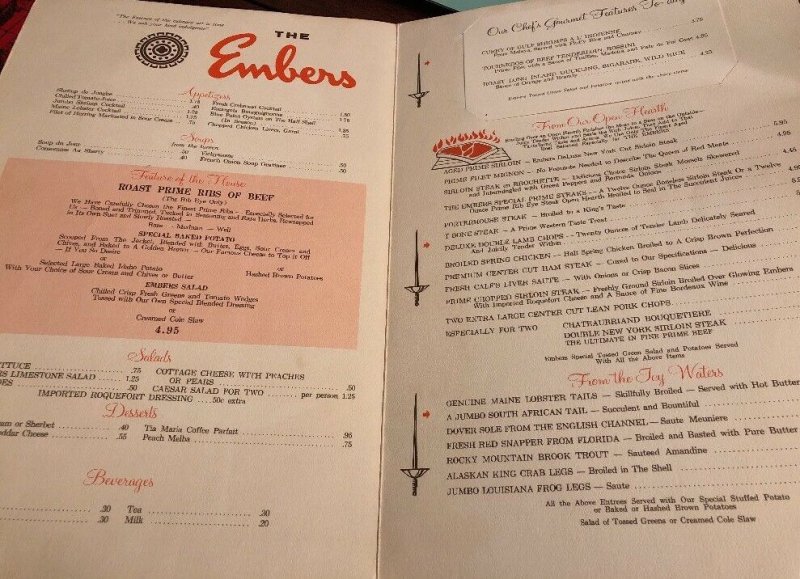 "The Essence of the culinary art is time
... We ask your kind indulgence"
THE
Embers
Appetizers
Shrimp de Jonghe
Chilled Tomato Juice
Jumbo Shrimp Cocktail 1.75
Maine Lobster Cocktail
Filet of Herring Marinated in Sour Cream
Fresh Crabmeat Cocktail 1.50
Escargots Bourguignonne 1.75
Blue Point Oysters on The Half Shell
(In Season)
Chopped Chicken Livers, Garni
Soups
from the tureen
Soup du Jour
Consomme Au Sherry
Vichyssoise .50
French Onion Soup Gourmet .50
Feature of the House
ROAST PRIME RIBS OF BEEF
(The Rib Eye Only)
We Have Carefully Chosen the Finest Prime Ribs — Especially Selected for
Us — Boned and Trimmed, Tucked in Seasoning and Rare Herbs, Rewrapped
in Its Own Suet and Slowly Roasted —
Rare — Medium — Well
SPECIAL BAKED POTATO
Scooped From The Jacket, Blended with Butter, Eggs, Sour Cream and
Chives, and Baked to a Golden Honor — Our Famous Cheese to Top it Off
— If You So Desire
or
Selected Large Baked Idaho Potato
With Your Choice of Sour Cream and Chives or Butter
or
Hashed Brown Potatoes
EMBERS SALAD
Chilled Crisp Fresh Greens and Tomato Wedges
Tossed with Our Own Special Blended Dressing
or
Creamed Cole Slaw
4.95
Salads
ETTUCE .75
RS LIMESTONE SALAD 1.25
OES .50
COTTAGE CHEESE WITH PEACHES
OR PEARS .50
CAESAR SALAD FOR TWO per person 1.25
IMPORTED ROQUEFORT DRESSING .50c extra
Desserts
am or Sherbet .40
ddar Cheese .55
Tia Maria Coffee Parfait .95
Peach Melba .75
Beverages
.30
.30
Tea .30
Milk .20
Our Chef's Gourmet Features To-day
CURRY OF GULF SHRIMPS A L' INDIENNE 3.75
Prime Malaya, Served with Fluffy Rice and Chutney
TOURNEDOS OF BEEF TENDERLOIN, ROSSINI
Prime Filet with a Sauce of Truffles, Madeira and Pate de Foie Gras
ROAST LONG ISLAND DUCKLING, BIGARADE, WILD RICE 4.25
Sauce of Orange and Brandy
Embers Tossed Green Salad and Potatoes served with the above items
From Our Open Hearth
AGED PRIME SIRLOIN — Embers DeLuxe New York Cut Sirloin Steak 5.95
PRIME FILET MIGNON — No Facends Needed to Describe The Queen of Red Meats
SIRLOIN STEAK en BROCHETTE — Delicious Choice Sirloin Steak Morsels Skewered 4.45
and Intermingled with Green Peppers and Bermuda Onions
THE EMBERS SPECIAL PRIME STEAKS — A Twelve Ounce Boneless Sirloin Steak Or a Twelve
Ounce Prime Rib Eye Steak Open Hearth Broiled to Seal in The Succulent Juices
PORTERHOUSE STEAK — Broiled to a King's Taste
T BONE STEAK — A Prime Western Taste Treat
DELUXE DOUBLE LAMB CHOPS — Twenty Ounces of Tender Lamb Delicately Seared
And Juicily Tender Within
BROILED SPRING CHICKEN — Half Spring Chicken Broiled to A Crisp Brown Perfection
PREMIUM CENTER CUT HAM STEAK — Cured to Our Specifications — Delicious
FRESH CALF'S LIVER SAUTE — With Onions or Crisp Bacon Slices
PRIME CHOPPED SIRLOIN STEAK — Freshly Ground Sirloin Broiled Over Glowing Embers
With Imported Roquefort Cheese and A Sauce of Fine Bordeaux Wine
TWO EXTRA LARGE CENTER CUT LEAN PORK CHOPS
ESPECIALLY FOR TWO CHATEAUBRIAND BOUQUETIERE
DOUBLE NEW YORK SIRLOIN STEAK
THE ULTIMATE IN FINE PRIME BEEF
Embers Special Tossed Green Salad and Potatoes Served
With All the Above Items
From the Icy Waters
GENUINE MAINE LOBSTER TAILS — Skillfully Broiled — Served with Hot Butter
A JUMBO SOUTH AFRICAN TAIL — Succulent and Bountiful
DOVER SOLE FROM THE ENGLISH CHANNEL — Saute Meuniere
FRESH RED SNAPPER FROM FLORIDA — Broiled and Basted with Pure Butter
ROCKY MOUNTAIN BROOK TROUT — Sauteed Amandine
ALASKAN KING CRAB LEGS — Broiled in The Shell
JUMBO LOUISIANA FROG LEGS — Saute
All the Above Entrees Served with Our Special Stuffed Potato
or Baked or Hashed Brown Potatoes
Salad of Tossed Greens or Creamed Cole Slaw